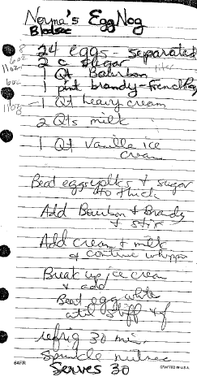 Nerma's EggNog
24 eggs - separated
2 c sugar
1 Qt Bourbon
1 pint brandy - french
1 Qt heavy cream
2 Qts milk
1 Qt Vanilla ice
cream
Beat egg yolks & sugar
to thick
Add Bourbon & Brandy
& stir
Add cream & milk
& continue whipping
Break up ice cream
& add
Beat egg white
until stiff &
refrig 30 min.
Sprinkle nutmeg
Serves 30